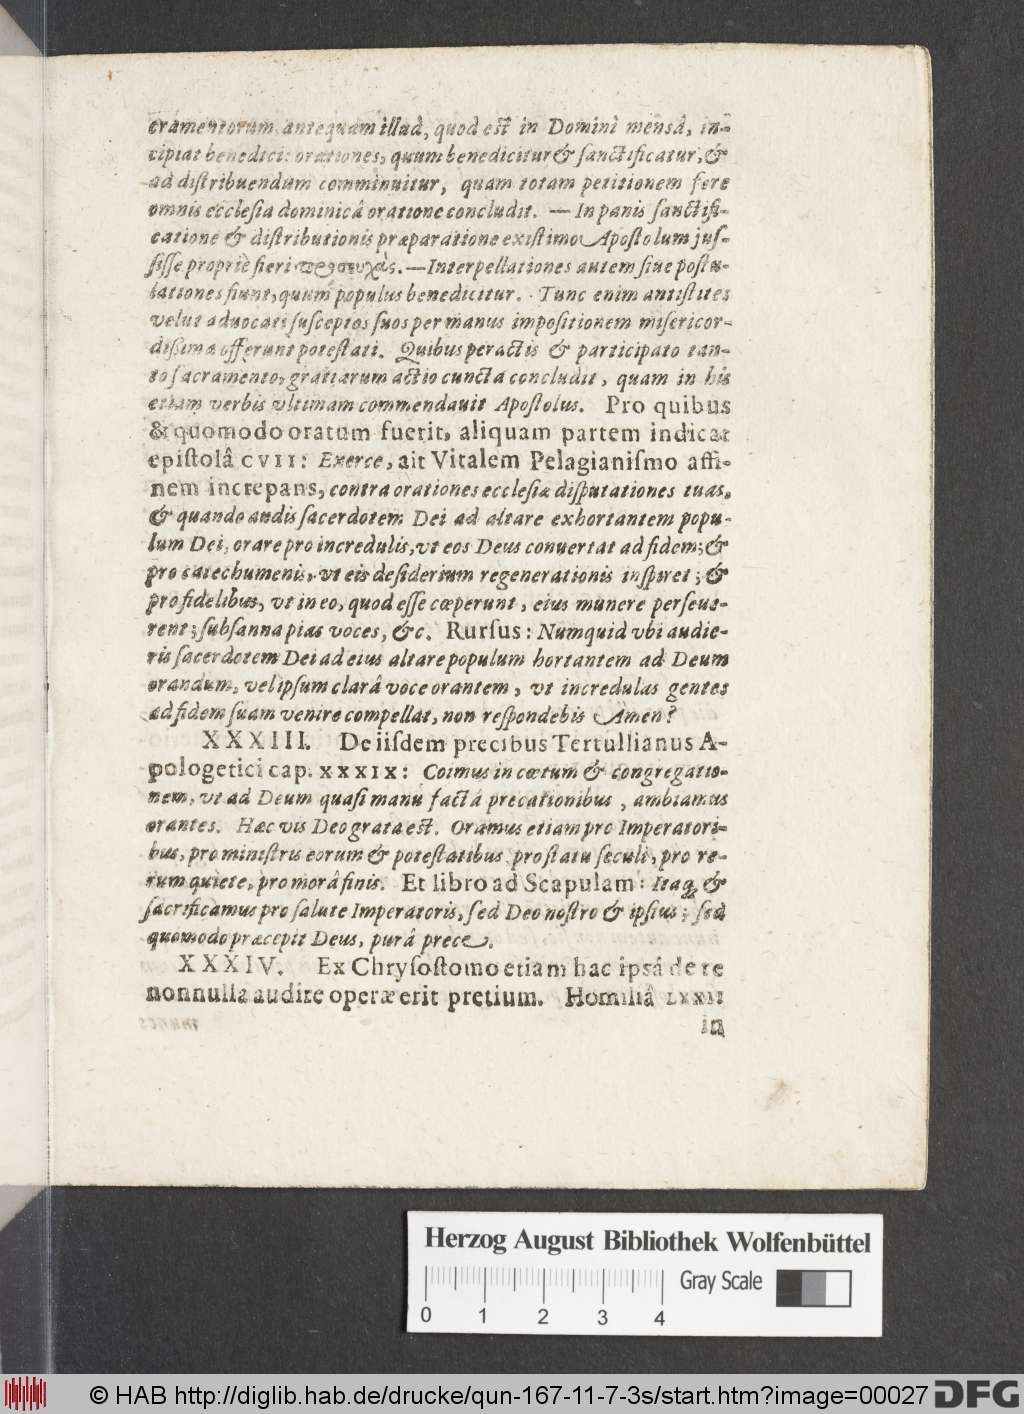 cramentorum, antequam illud, quod est in Domini mensâ, in-
cipiat benedici: orationes, quum benedicitur & sanctificatur, &
ad distribuendum comminuitur, quam totam petitionem fere
omnis ecclesia dominicâ oratione concludit. — In panis sanctifi-
catione & distributionis præparatione existimo Apostolum jus-
sisse propriè fieri προσευχὰς. — Interpellationes autem siue postu-
lationes fiunt, quum populus benedicitur. Tunc enim antistites
velut aduocati susceptos suos per manus impositionem misericor-
dißimæ offerunt potestati. Quibus peractis & participato tan-
to sacramento, gratiarum actio cuncta concludit, quam in his
etiam verbis vltimam commendauit Apostolus. Pro quibus
& quomodo oratum fuerit, aliquam partem indicat
epistolâ CVII: Exerce, ait Vitalem Pelagianismo affi-
nem increpans, contra orationes ecclesiæ disputationes tuas,
& quando audis sacerdotem Dei ad altare exhortantem popu-
lum Dei, orare pro incredulis, vt eos Deus conuertat ad fidem; &
pro catechumenis, vt eis desiderium regenerationis inspiret; &
pro fidelibus, vt in eo, quod esse cœperunt, eius munere perseue-
rent; subsanna pias voces, &c. Rursus: Numquid vbi audie-
ris sacerdotem Dei ad eius altare populum hortantem ad Deum
orandum, vel ipsum clarâ voce orantem, vt incredulas gentes
ad fidem suam venire compellat, non respondebis Amen?
XXXIII. De iisdem precibus Tertullianus A-
pologetici cap. XXXIX: Coimus in cœtum & congregatio-
nem, vt ad Deum quasi manu factâ precationibus, ambiamus
orantes. Hæc vis Deo grata est. Oramus etiam pro Imperatori-
bus, pro ministris eorum & potestatibus, pro statu seculi, pro re-
rum quiete, pro morâ finis. Et libro ad Scapulam: Itaq; &
sacrificamus pro salute Imperatoris, sed Deo nostro & ipsius; sed
quomodo præcepit Deus, purâ prece.
XXXIV. Ex Chrysostomo etiam hac ipsâ de re
nonnulla audire operæ erit pretium. Homiliâ LXXII
in
Herzog August Bibliothek Wolfenbüttel
Gray Scale
0 1 2 3 4
© HAB http://diglib.hab.de/drucke/qun-167-11-7-3s/start.htm?image=00027 DFG